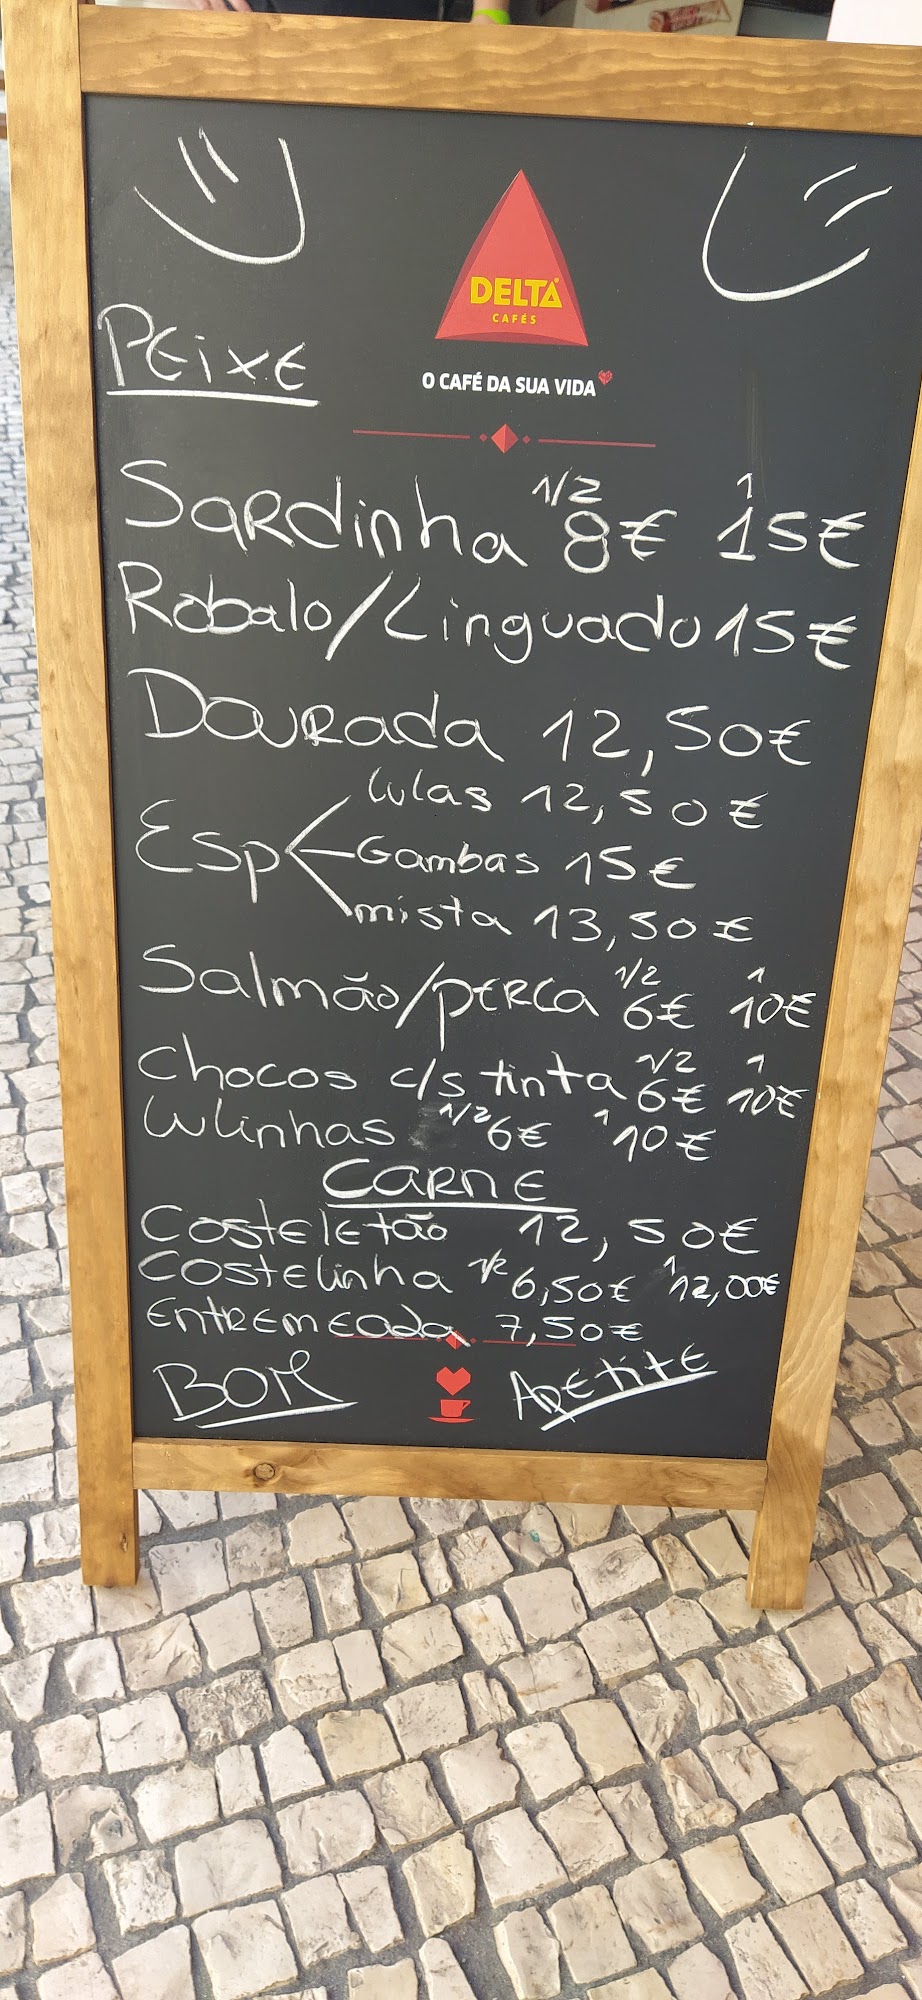 DELTA
CAFÉS
O CAFÉ DA SUA VIDA
PEiXE
Sardinha 1/2 8€ 1 15€
Robalo/Linguado 15€
Dourada 12,50€
Esp
Lulas 12,50€
Gambas 15€
mista 13,50€
Salmão/perca 1/2 6€ 1 10€
Chocos c/s tinta 1/2 6€ 1 10€
Lulinhas 1/2 6€ 1 10€
CARNE
Costeletão 12,50€
Costelinha 1/2 6,50€ 1 12,00€
Entremeada 7,50€
BOM APETITE